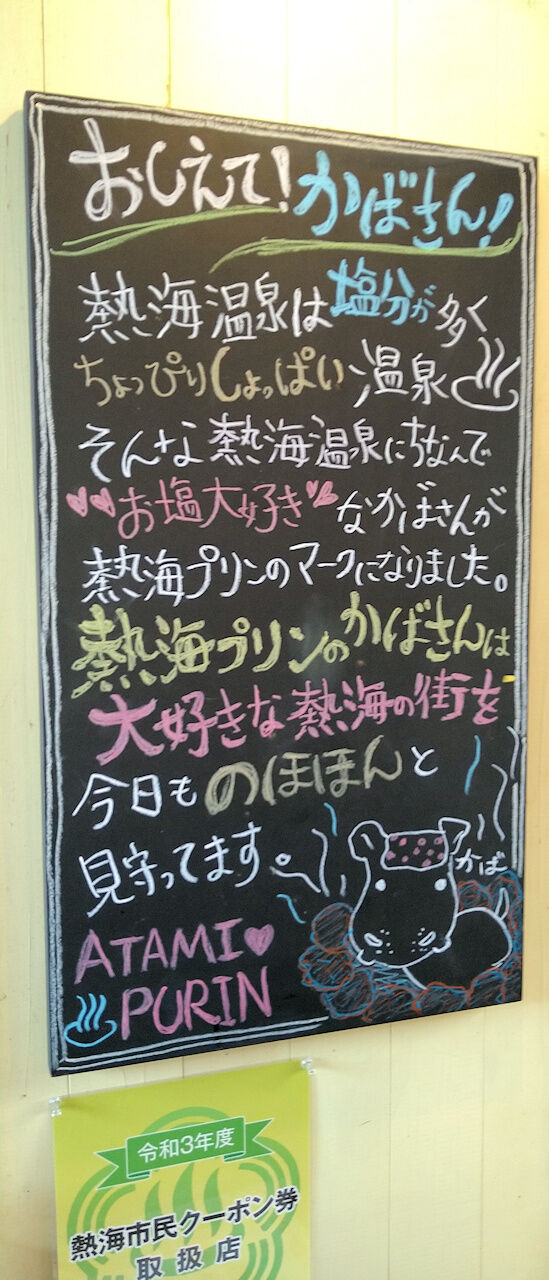 おしえて！かばさん！
熱海温泉は塩分が多く
ちょっぴりしょっぱい温泉♨
そんな熱海温泉にちなんで
お塩大好きなかばさんが
熱海プリンのマークになりました。
熱海プリンのかばさんは
大好きな熱海の街を
今日ものほほんと
見守ってます。
かば
ATAMI♥
♨PURIN
令和3年度
熱海市民クーポン券
取扱店